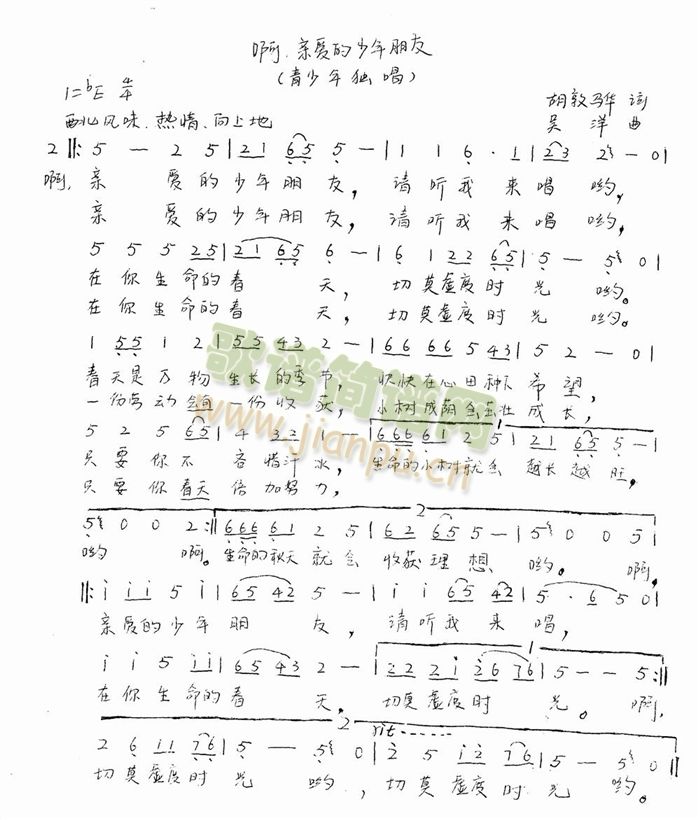 啊,亲爱的少年朋友
(青少年独唱)
1=♭E 4/4
西北风味、热情、向上地
胡敦骅 词
吴洋 曲
2 ‖: 5 — 2 5 | 2 1 6 5 5 — | 1 1 6 · 1 | 2 3 2 — 0 |
啊, 亲 爱的少年朋 友, 请听我来唱 哟,
亲 爱的少年朋 友, 请听我来唱 哟,
5 5 5 2 5 | 2 1 6 5 6 — | 6 1 2 2 6 5 | 5 — 5 0 |
在你生命的春 天, 切莫虚度时光 哟。
在你生命的春 天, 切莫虚度时光 哟。
1 5 5 1 2 | 5 5 4 3 2 — | 6 6 6 6 5 4 3 | 5 2 — 0 |
春天是万物生长的季节, 快快在心田种下希望,
一份劳动 一份收获, 小树成阴会茁壮成长,
5 2 5 6 5 | 4 3 2 1 — | 6 6 6 6 1 2 5 | 2 1 6 5 5 — |
只要你不吝惜汗水, 生命的小树就会越长越旺,
只要你春天倍加努力,
2
5 0 0 2 :‖ 6 6 6 6 1 2 5 | 6 2 6 5 5 — | 5 0 0 5 |
哟 啊。 生命的秋天就会收获理想 哟。 啊,
‖: i i i 5 i | 6 5 4 2 5 — | i i 6 5 4 2 | 5 · 6 5 0 |
亲爱的少年朋 友, 请听我来 唱,
1
i i 5 i i | 6 5 4 3 2 — | 2 2 2 i 2 6 7 6 | 5 — — 5 :‖
在你生命的春 天, 切莫虚度时 光。 啊,
2 rit------
2 6 i i 7 6 | 5 — 5 0 | 2 5 i 2 7 6 | 5 — 5 0 ‖
切莫虚度时光 哟, 切莫虚度时光 哟。
歌谱简谱网
www.jianpu.cn